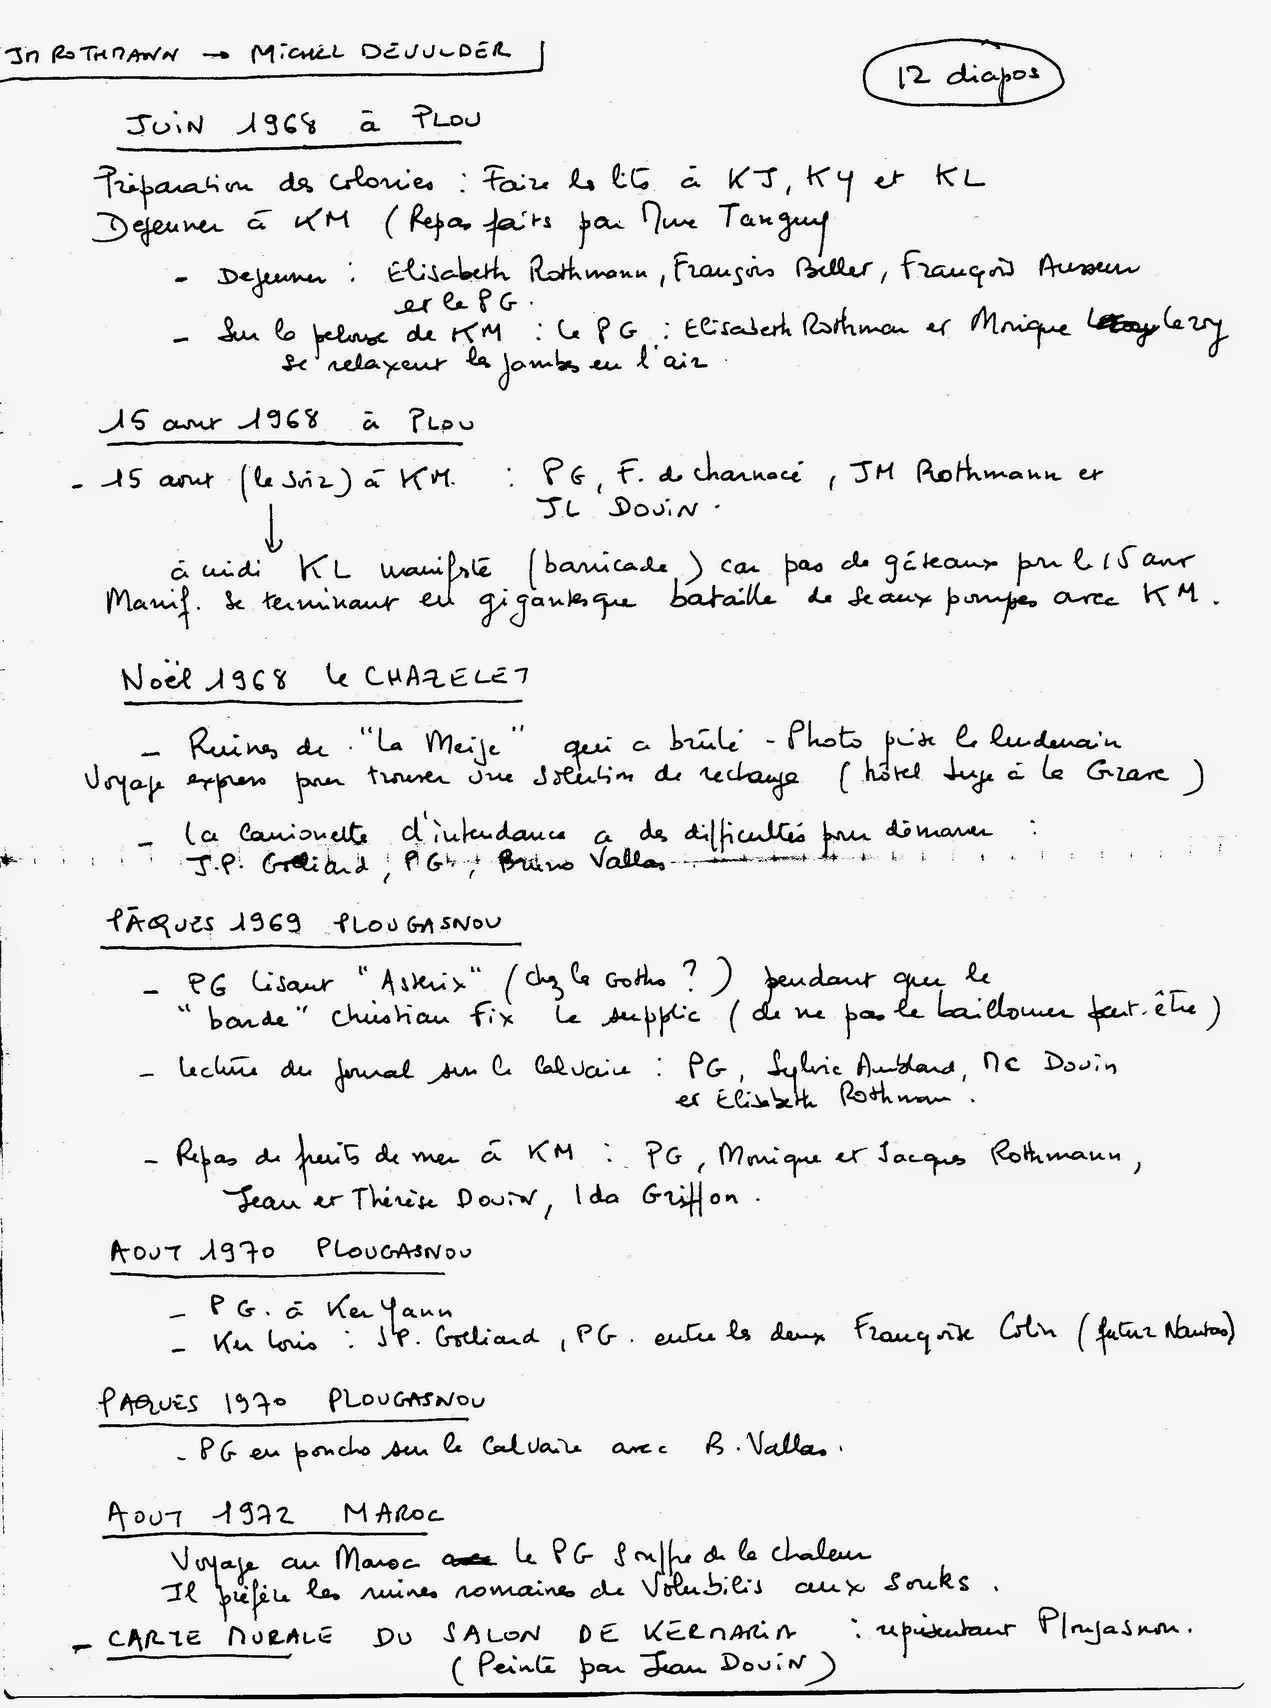 JM ROTHMANN → MICHEL DEVULDER
12 diapos
JUIN 1968 à PLOU
Préparation des colonies : Faire les lits à KJ, KY et KL
Dejeuner à KM (Repas faits par Mme Tanguy
- Dejeuner : Elisabeth Rothmann, François Biller, François
et le PG.
- Sur la pelouse de KM : le PG : Elisabeth Rothman et Monique Lerry
se relaxent les jambes en l'air.
15 aout 1968 à PLOU
- 15 aout (le soir) à KM. : PG, F. de Charnacé, JM Rothmann et
JL DOUIN.
à midi KL manifeste (barricade) car pas de gâteaux pour le 15 aout
Manif. se terminant en gigantesque bataille de seaux pompes avec KM.
Noël 1968 le CHAZELET
- Ruines de "La Meije" qui a brûlé - Photo prise le lendemain
Voyage express pour trouver une solution de rechange (hôtel Juge à la Grave)
- La camionette d'intendance a des difficultés pour démarrer :
J.P. Golliard, PG, Bruno Vallas
PÂQUES 1969 PLOUGASNOU
- PG lisant "Asterix" (chez les Goths ?) pendant que la
"barde" Christian Fix le supplie (de ne pas le baillonner peut-être)
- Lecture du journal sur le Calvaire : PG, Sylvie Aublard, MC Douin
et Elisabeth Rothman.
- Repas de fruits de mer à KM : PG, Monique et Jacques Rothmann,
Jean et Thérèse DOUIN, Ida Griffon.
AOUT 1970 PLOUGASNOU
- PG. à Ker Yann
- Ker Loris : JP. Golliard, PG. entre les deux Françoise Colin (futur Nantas)
PAQUES 1970 PLOUGASNOU
- PG en poncho sur le Calvaire avec B. Vallas.
AOUT 1972 MAROC
Voyage au Maroc le PG souffre de la chaleur
Il préfère les ruines romaines de Volubilis aux souks.
- CARTE MURALE DU SALON DE KERMARIA : représentant Plougasnou.
(Peinte par Jean DOUIN)